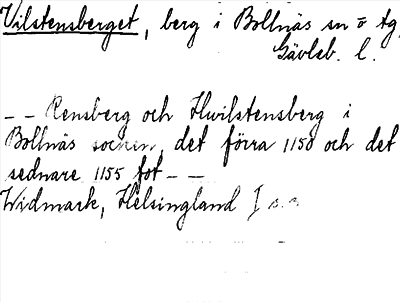 Vilstensberget, berg i Bollnäs sn o tg,
Gävleb. l.
– – Rensberg och Hwilstensberg i
Bollnäs socken, det förra 1150 och det
sednare 1155 fot – –
Widmark, Helsingland I s.